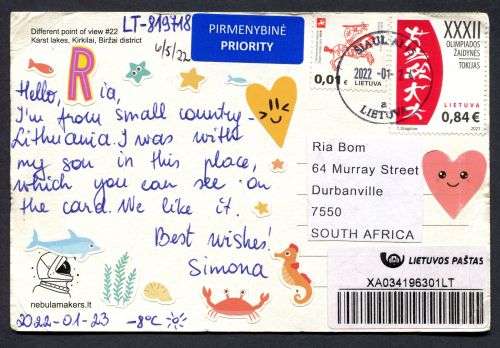 Different point of view #22
Karst lakes, Kirkilai, Biržai district
LT-819718
4/5/22
PIRMENYBINĖ
PRIORITY
0,01 €
LIETUVA
ŠIAULIAI
2022 -01- 2
a
LIETUVA
XXXII
OLIMPIADOS
ŽAIDYNĖS
TOKIJAS
LIETUVA
0,84 €
2021
Hello, Ria,
I'm from small country -
Lithuania. I was with
my son in this place,
which you can see on
the card. We like it.
Best wishes!
Simona
Ria Bom
64 Murray Street
Durbanville
7550
SOUTH AFRICA
nebulamakers.lt
2022-01-23 -8°C
LIETUVOS PAŠTAS
XA034196301LT